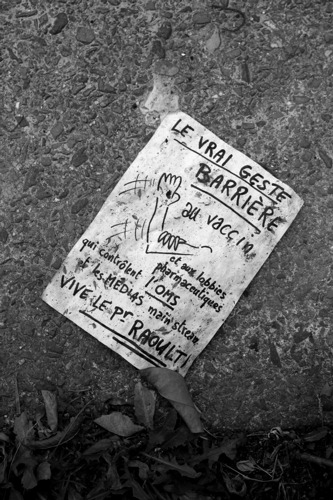 LE VRAI GESTE
BARRIÈRE
au vaccin
et aux lobbies
pharmaceutiques
qui contrôlent l'OMS
et les MÉDIAS mainstream
VIVE LE Pr RAOULT!